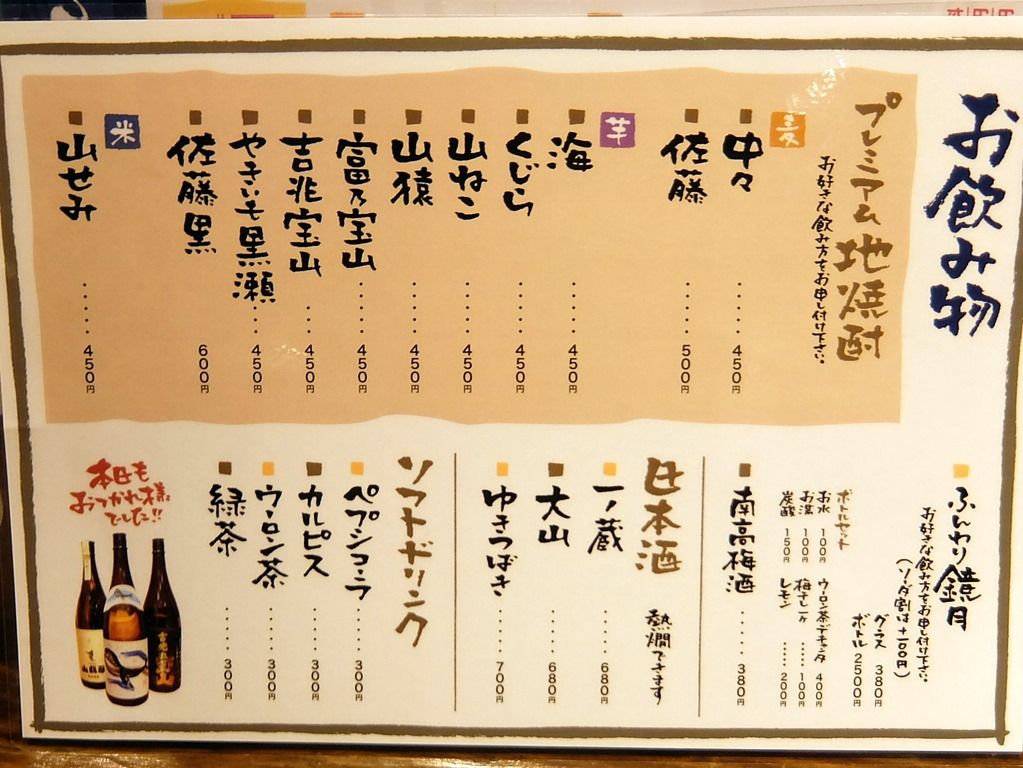 お飲み物
プレミアム地焼酎
お好きな飲み方をお申し付け下さい。
麦
中々 ……… 450円
佐藤 ……… 500円
芋
海 ……… 450円
くじら ……… 450円
山ねこ ……… 450円
山猿 ……… 450円
富乃宝山 ……… 450円
吉兆宝山 ……… 450円
やきいも黒瀬 ……… 450円
佐藤黒 ……… 600円
米
山せみ ……… 450円
ふんわり鏡月
お好きな飲み方をお申し付け下さい。
(ソーダ割は+100円)
グラス 380円
ボトル 2500円
ボトルセット
お水 100円
お湯 100円
炭酸 150円
ウーロン茶デキャンタ 400円
梅干し一ケ …… 100円
レモン …… 200円
南高梅酒 ……… 380円
日本酒
熱燗できます
一ノ蔵 ……… 680円
大山 ……… 680円
ゆきつばき ……… 700円
ソフトドリンク
ペプシコーラ ……… 300円
カルピス ……… 300円
ウーロン茶 ……… 300円
緑茶 ……… 300円
本日も
おつかれ様
でした!!